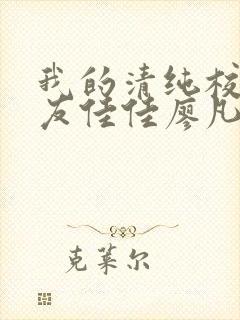 我的清纯校
友佳佳廖凡
克莱尔